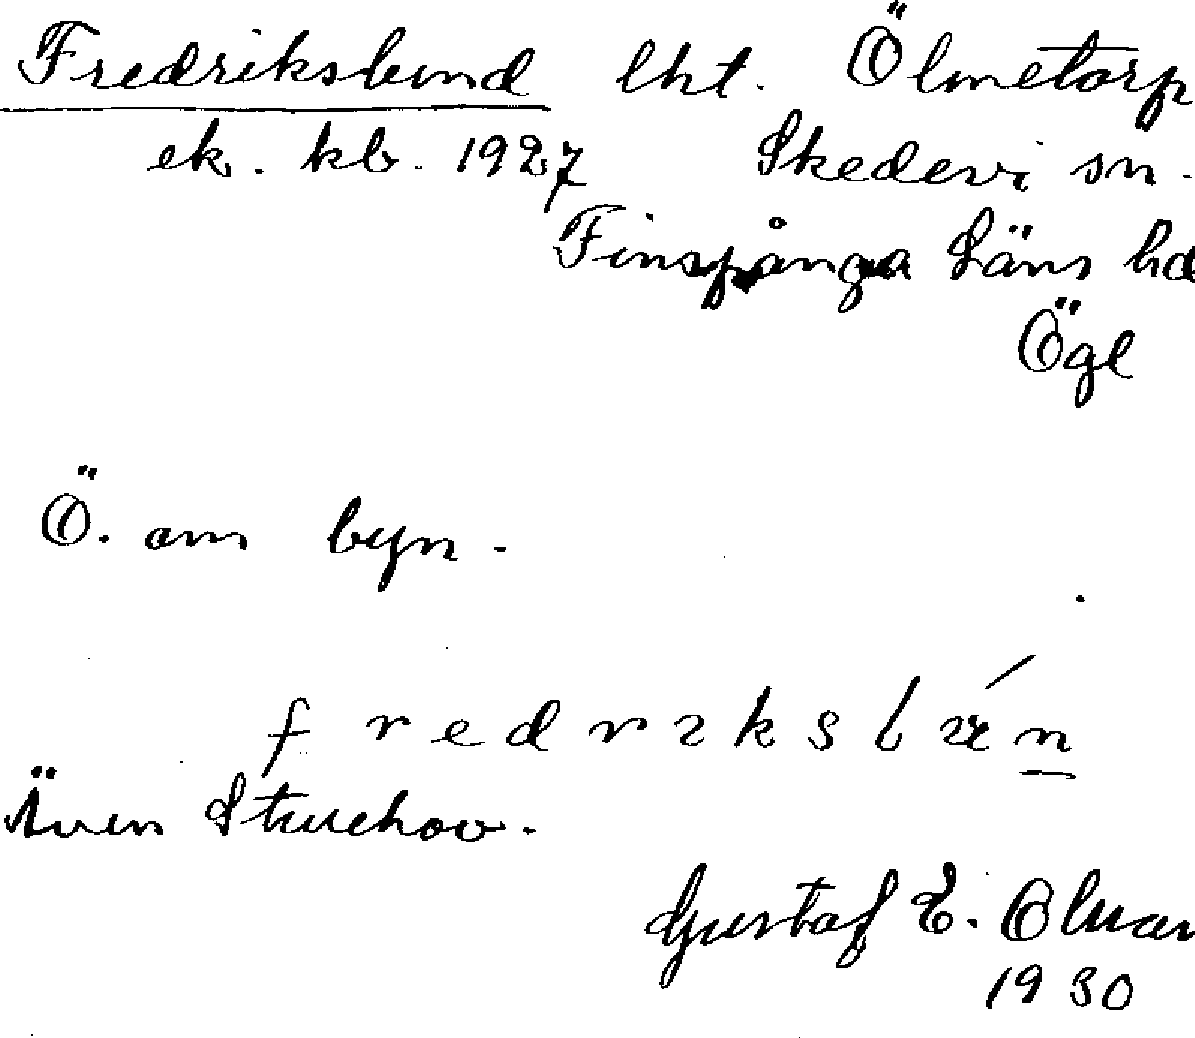 Fredrikslund lht. Ölmetorp
ek. kb. 1927 Skedevi sn.
Finspånga Läns hd
Ögl
Ö. om byn.
fredrikslun
Även
Gustaf E.
1930